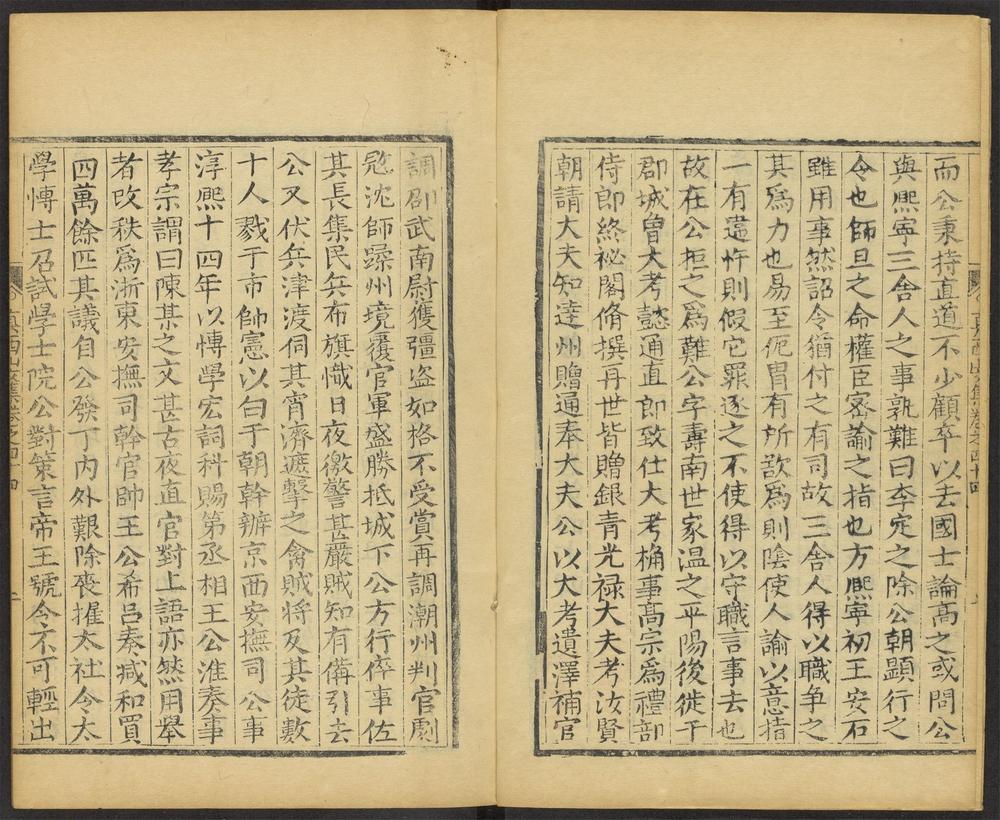 而公秉持直道不少顧卒以去國士論高之或問公
與熙寧三舍人之事孰難曰李定之除公朝顯行之
令也師旦之命權臣密諭之指也方熙寧初王安石
雖用事然詔令猶付之有司故三舍人得以職爭之
其爲力也易至侂冑有所欲爲則陰使人諭以意指
一有違忤則假它罪逐之不使得以守職言事去也
故在公拒之爲難公字壽南世家温之平陽後徙于
郡城曾大考懿通直郎致仕大考桷事高宗爲禮部
侍郎終祕閣脩撰再世皆贈銀青光禄大夫考汝賢
朝請大夫知達州贈通奉大夫公以大考遺澤補官
真西山集卷之四十四
調邵武南尉獲彊盗如格不受賞再調潮州判官劇
㓂沈師躁州境覆官軍盛勝抵城下公方行倅事佐
其長集民兵布旗幟日夜儆警甚嚴賊知有備引去
公又伏兵津渡伺其宵濟遮擊之禽賊將及其徒數
十人戮于市帥憲以白于朝幹辨京西安撫司公事
淳熙十四年以博學宏詞科賜第丞相王公淮奏事
孝宗謂曰陳某之文甚古夜直官對上語亦然用舉
者改秩爲浙東安撫司幹官帥王公希吕奏減和買
四萬餘匹其議自公發丁内外艱除喪擢太社令太
學博士召試學士院公對策言帝王號令不可輕出
真西山集卷之四十四